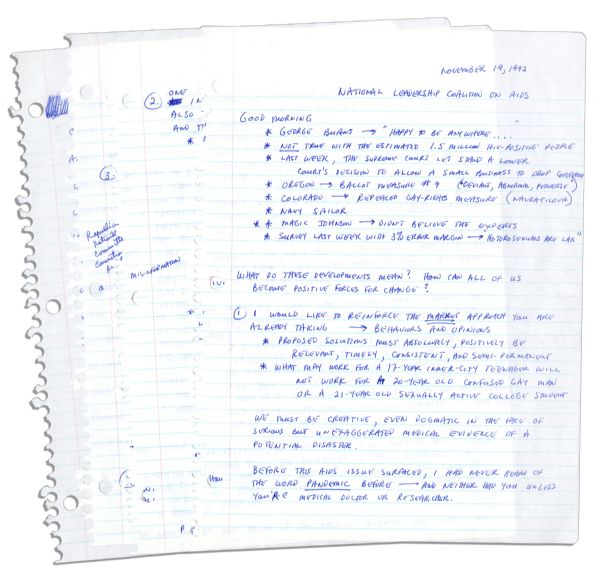 NOVEMBER 19, 1992
NATIONAL LEADERSHIP COALITION ON AIDS
GOOD MORNING
* GEORGE BURNS → "HAPPY TO BE ANYWHERE....
* NOT TRUE WITH THE ESTIMATED 1.5 MILLION HIV-POSITIVE PEOPLE
* LAST WEEK, THE SUPREME COURT LET STAND A LOWER
COURT'S DECISION TO ALLOW A SMALL BUSINESS TO DROP COVERAGE
* OREGON → BALLOT MEASURE #9 (DEVIANT, ABNORMAL, PERVERSE)
* COLORADO → REPEALED GAY-RIGHTS MEASURE (NAVRATILOVA)
* NAVY SAILOR
* * MAGIC JOHNSON → DIDN'T BELIEVE THE EXPERTS
* SURVEY LAST WEEK WITH 3% ERROR MARGIN → "HETEROSEXUALS ARE LAX"
WHAT DO THESE DEVELOPMENTS MEAN? HOW CAN ALL OF US
BECOME POSITIVE FORCES FOR CHANGE?
1. I WOULD LIKE TO REINFORCE THE MARKET APPROACH YOU ARE
ALREADY TAKING → BEHAVIORS AND OPINIONS
* PROPOSED SOLUTIONS MUST ABSOLUTELY, POSITIVELY BE
RELEVANT, TIMELY, CONSISTENT, AND SEMI-PERMANENT
* WHAT MAY WORK FOR A 17-YEAR INNER-CITY TEENAGER WILL
NOT WORK FOR A 20-YEAR OLD CONFUSED GAY MAN
OR A 21-YEAR OLD SEXUALLY ACTIVE COLLEGE STUDENT
WE MUST BE CREATIVE, EVEN DOGMATIC IN THE FACE OF
SERIOUS BUT UNEXAGGERATED MEDICAL EVIDENCE OF A
POTENTIAL DISASTER.
BEFORE THIS AIDS ISSUE SURFACED, I HAD NEVER HEARD OF
THE WORD PANDEMIC BEFORE — AND NEITHER HAD YOU UNLESS
YOU'RE MEDICAL DOCTOR OR RESEARCHER.
2. ONE
IN
ALSO
AND
*
3.
Republican
National
Committee
MISINFORMATION